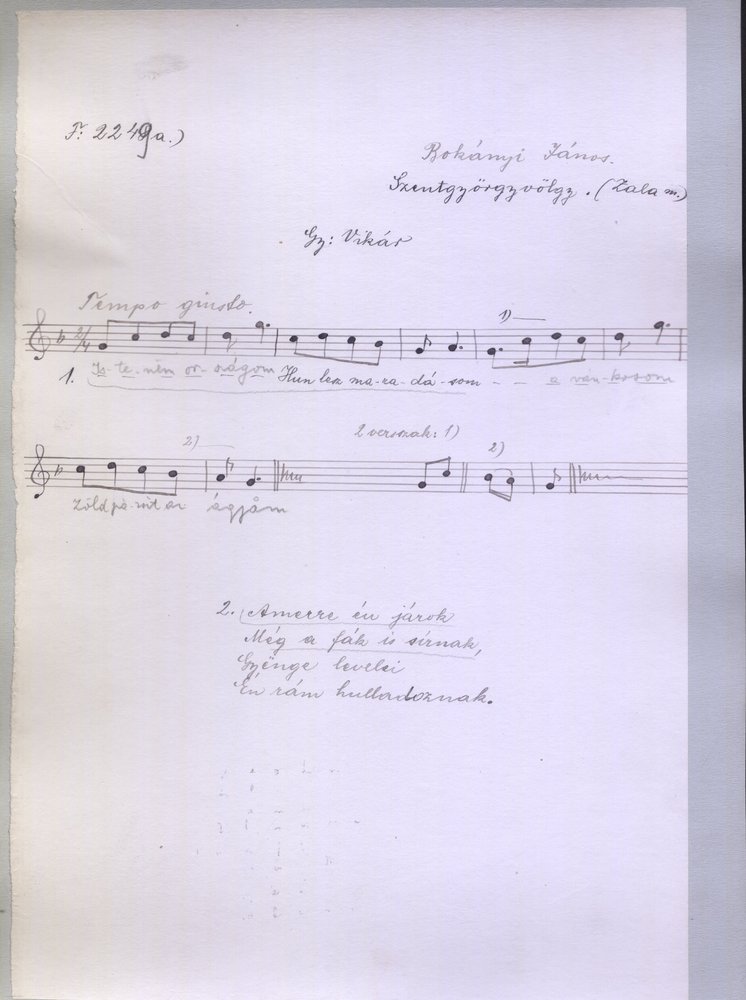 F: 2249a.)
Bokányi János.
Szentgyörgyvölgy. (Zala m.)
Gy: Vikár
Tempo giusto.
1)
2/4
1. Is-te-nem or-szágom Hun lesz ma-ra-dá-som - - a ván-kosom
2) 2 versszak: 1) 2)
Zöld pá-zsit az ágyåm
2. Amerre én járok
Még a fák is sírnak,
Gyönge levelei
Én rám hulladoznak.